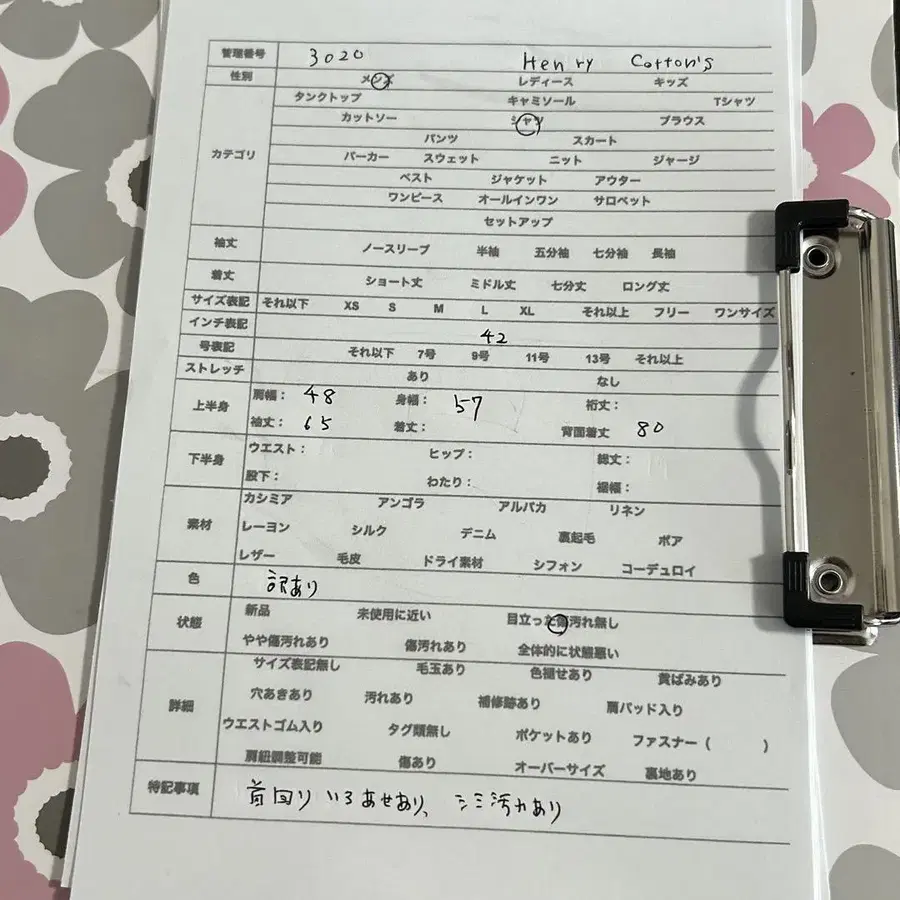 管理番号 3020 Henry Cotton's
性別 メンズ レディース キッズ
カテゴリ タンクトップ キャミソール Tシャツ
カットソー シャツ ブラウス
パンツ スカート
パーカー スウェット ニット ジャージ
ベスト ジャケット アウター
ワンピース オールインワン サロペット
セットアップ
袖丈 ノースリーブ 半袖 五分袖 七分袖 長袖
着丈 ショート丈 ミドル丈 七分丈 ロング丈
サイズ表記 それ以下 XS S M L XL それ以上 フリー ワンサイズ
インチ表記 42
号表記 それ以下 7号 9号 11号 13号 それ以上
ストレッチ あり なし
上半身 肩幅: 48 身幅: 57 裄丈:
袖丈: 65 着丈: 背面着丈 80
下半身 ウエスト: ヒップ: 総丈:
股下: わたり: 裾幅:
素材 カシミア アンゴラ アルパカ リネン
レーヨン シルク デニム 裏起毛 ボア
レザー 毛皮 ドライ素材 シフォン コーデュロイ
色 訳あり
状態 新品 未使用に近い 目立った傷汚れ無し
やや傷汚れあり 傷汚れあり 全体的に状態悪い
詳細 サイズ表記無し 毛玉あり 色褪せあり 黄ばみあり
穴あきあり 汚れあり 補修跡あり 肩パッド入り
ウエストゴム入り タグ類無し ポケットあり ファスナー ( )
肩紐調整可能 傷あり オーバーサイズ 裏地あり
特記事項 首回り いろあせあり、シミ汚れあり